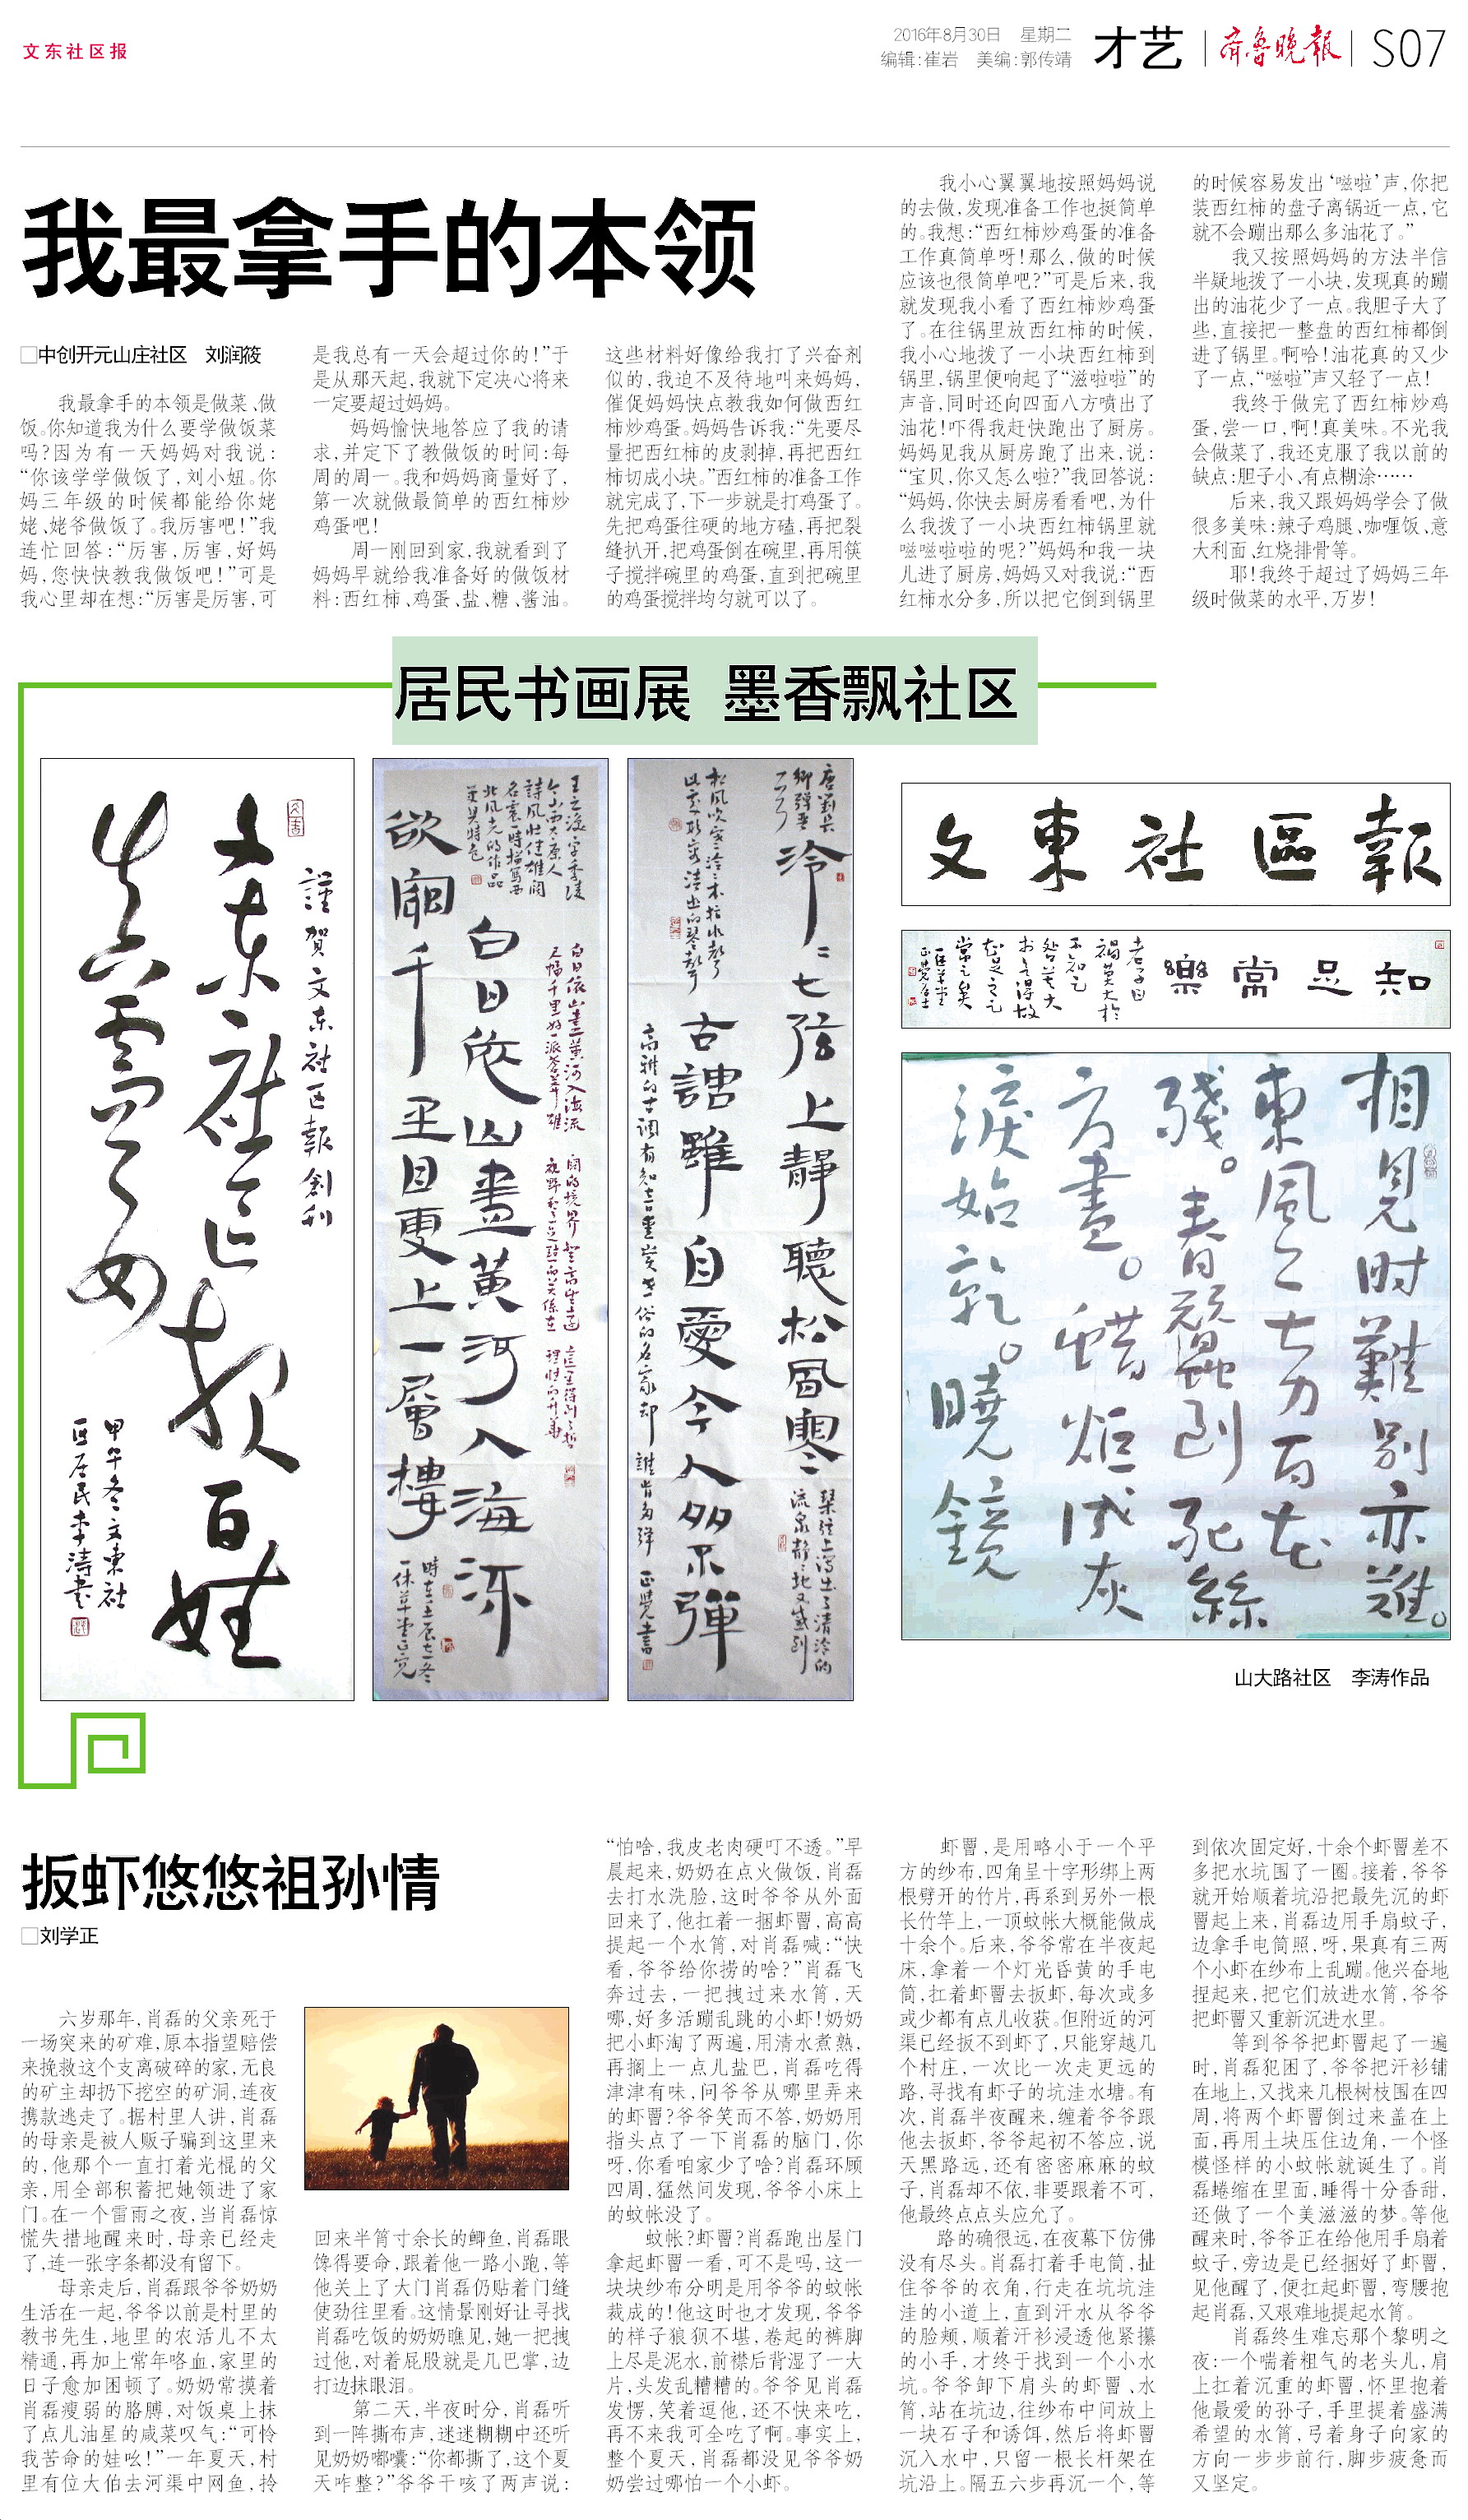 文东社区报
2016年8月30日 星期二
编辑:崔岩 美编:郭传靖
才艺
齐鲁晚报
S07
我最拿手的本领
□中创开元山庄社区 刘润筱
我最拿手的本领是做菜、做
饭。你知道我为什么要学做饭菜
吗?因为有一天妈妈对我说:
“你该学学做饭了,刘小妞。你
妈三年级的时候都能给你姥
姥、姥爷做饭了。我厉害吧!”我
连忙回答:“厉害,厉害,好妈
妈,您快快教我做饭吧!”可是
我心里却在想:“厉害是厉害,可
是我总有一天会超过你的!”于
是从那天起,我就下定决心将来
一定要超过妈妈。
妈妈愉快地答应了我的请
求,并定下了教做饭的时间:每
周的周一。我和妈妈商量好了,
第一次就做最简单的西红柿炒
鸡蛋吧!
周一刚回到家,我就看到了
妈妈早就给我准备好的做饭材
料:西红柿、鸡蛋、盐、糖、酱油。
这些材料好像给我打了兴奋剂
似的,我迫不及待地叫来妈妈,
催促妈妈快点教我如何做西红
柿炒鸡蛋。妈妈告诉我:“先要尽
量把西红柿的皮剥掉,再把西红
柿切成小块。”西红柿的准备工作
就完成了,下一步就是打鸡蛋了。
先把鸡蛋往硬的地方磕,再把裂
缝扒开,把鸡蛋倒在碗里,再用筷
子搅拌碗里的鸡蛋,直到把碗里
的鸡蛋搅拌均匀就可以了。
我小心翼翼地按照妈妈说
的去做,发现准备工作也挺简单
的。我想:“西红柿炒鸡蛋的准备
工作真简单呀!那么,做的时候
应该也很简单吧?”可是后来,我
就发现我小看了西红柿炒鸡蛋
了。在往锅里放西红柿的时候,
我小心地拨了一小块西红柿到
锅里,锅里便响起了“滋啦啦”的
声音,同时还向四面八方喷出了
油花!吓得我赶快跑出了厨房。
妈妈见我从厨房跑了出来,说:
“宝贝,你又怎么啦?”我回答说:
“妈妈,你快去厨房看看吧,为什
么我拨了一小块西红柿锅里就
嗞嗞啦啦的呢?”妈妈和我一块
儿进了厨房,妈妈又对我说:“西
红柿水分多,所以把它倒到锅里
的时候容易发出‘嗞啦’声,你把
装西红柿的盘子离锅近一点,它
就不会蹦出那么多油花了。”
我又按照妈妈的方法半信
半疑地拨了一小块,发现真的蹦
出的油花少了一点。我胆子大了
些,直接把一整盘的西红柿都倒
进了锅里。啊哈!油花真的又少
了一点,“嗞啦”声又轻了一点!
我终于做完了西红柿炒鸡
蛋,尝一口,啊!真美味。不光我
会做菜了,我还克服了我以前的
缺点:胆子小、有点糊涂……
后来,我又跟妈妈学会了做
很多美味:辣子鸡腿、咖喱饭、意
大利面、红烧排骨等。
耶!我终于超过了妈妈三年
级时做菜的水平,万岁!
居民书画展 墨香飘社区
謹賀文东社区報創刊
文东社区报百姓
甲午冬文東社
区居民李涛書
白日依山盡黄河入海流
欲窮千里目更上一層樓
泠泠七弦上靜聽松風寒
古調雖自愛今人多不彈
文東社區報
知足常樂
相見时難别亦難。
東風无力百花
殘。春蠶到死絲
方盡。蜡炬成灰
淚始乾。曉鏡
山大路社区 李涛作品
扳虾悠悠祖孙情
□刘学正
六岁那年,肖磊的父亲死于
一场突来的矿难,原本指望赔偿
来挽救这个支离破碎的家,无良
的矿主却扔下挖空的矿洞,连夜
携款逃走了。据村里人讲,肖磊
的母亲是被人贩子骗到这里来
的,他那个一直打着光棍的父
亲,用全部积蓄把她领进了家
门。在一个雷雨之夜,当肖磊惊
慌失措地醒来时,母亲已经走
了,连一张字条都没有留下。
母亲走后,肖磊跟爷爷奶奶
生活在一起,爷爷以前是村里的
教书先生,地里的农活儿不太
精通,再加上常年咯血,家里的
日子愈加困顿了。奶奶常摸着
肖磊瘦弱的胳膊,对饭桌上抹
了点儿油星的咸菜叹气:“可怜
我苦命的娃吆!”一年夏天,村
里有位大伯去河渠中网鱼,拎
回来半筲寸余长的鲫鱼,肖磊眼
馋得要命,跟着他一路小跑,等
他关上了大门肖磊仍贴着门缝
使劲往里看。这情景刚好让寻找
肖磊吃饭的奶奶瞧见,她一把拽
过他,对着屁股就是几巴掌,边
打边抹眼泪。
第二天,半夜时分,肖磊听
到一阵撕布声,迷迷糊糊中还听
见奶奶嘟囔:“你都撕了,这个夏
天咋整?”爷爷干咳了两声说:
“怕啥,我皮老肉硬叮不透。”早
晨起来,奶奶在点火做饭,肖磊
去打水洗脸,这时爷爷从外面
回来了,他扛着一捆虾罾,高高
提起一个水筲,对肖磊喊:“快
看,爷爷给你捞的啥?”肖磊飞
奔过去,一把拽过来水筲,天
哪,好多活蹦乱跳的小虾!奶奶
把小虾淘了两遍,用清水煮熟,
再搁上一点儿盐巴,肖磊吃得
津津有味,问爷爷从哪里弄来
的虾罾?爷爷笑而不答,奶奶用
指头点了一下肖磊的脑门,你
呀,你看咱家少了啥?肖磊环顾
四周,猛然间发现,爷爷小床上
的蚊帐没了。
蚊帐?虾罾?肖磊跑出屋门
拿起虾罾一看,可不是吗,这一
块块纱布分明是用爷爷的蚊帐
裁成的!他这时也才发现,爷爷
的样子狼狈不堪,卷起的裤脚
上尽是泥水,前襟后背湿了一大
片,头发乱糟糟的。爷爷见肖磊
发愣,笑着逗他,还不快来吃,
再不来我可全吃了啊。事实上,
整个夏天,肖磊都没见爷爷奶
奶尝过哪怕一个小虾。
虾罾,是用略小于一个平
方的纱布,四角呈十字形绑上两
根劈开的竹片,再系到另外一根
长竹竿上,一顶蚊帐大概能做成
十余个。后来,爷爷常在半夜起
床,拿着一个灯光昏黄的手电
筒,扛着虾罾去扳虾,每次或多
或少都有点儿收获。但附近的河
渠已经扳不到虾了,只能穿越几
个村庄,一次比一次走更远的
路,寻找有虾子的坑洼水塘。有
次,肖磊半夜醒来,缠着爷爷跟
他去扳虾,爷爷起初不答应,说
天黑路远,还有密密麻麻的蚊
子,肖磊却不依,非要跟着不可,
他最终点点头应允了。
路的确很远,在夜幕下仿佛
没有尽头。肖磊打着手电筒,扯
住爷爷的衣角,行走在坑坑洼
洼的小道上,直到汗水从爷爷
的脸颊,顺着汗衫浸透他紧攥
的小手,才终于找到一个小水
坑。爷爷卸下肩头的虾罾、水
筲,站在坑边,往纱布中间放上
一块石子和诱饵,然后将虾罾
沉入水中,只留一根长杆架在
坑沿上。隔五六步再沉一个,等
到依次固定好,十余个虾罾差不
多把水坑围了一圈。接着,爷爷
就开始顺着坑沿把最先沉的虾
罾起上来,肖磊边用手扇蚊子,
边拿手电筒照,呀,果真有三两
个小虾在纱布上乱蹦。他兴奋地
捏起来,把它们放进水筲,爷爷
把虾罾又重新沉进水里。
等到爷爷把虾罾起了一遍
时,肖磊犯困了,爷爷把汗衫铺
在地上,又找来几根树枝围在四
周,将两个虾罾倒过来盖在上
面,再用土块压住边角,一个怪
模怪样的小蚊帐就诞生了。肖
磊蜷缩在里面,睡得十分香甜,
还做了一个美滋滋的梦。等他
醒来时,爷爷正在给他用手扇着
蚊子,旁边是已经捆好了虾罾,
见他醒了,便扛起虾罾,弯腰抱
起肖磊,又艰难地提起水筲。
肖磊终生难忘那个黎明之
夜:一个喘着粗气的老头儿,肩
上扛着沉重的虾罾,怀里抱着
他最爱的孙子,手里提着盛满
希望的水筲,弓着身子向家的
方向一步步前行,脚步疲惫而
又坚定。